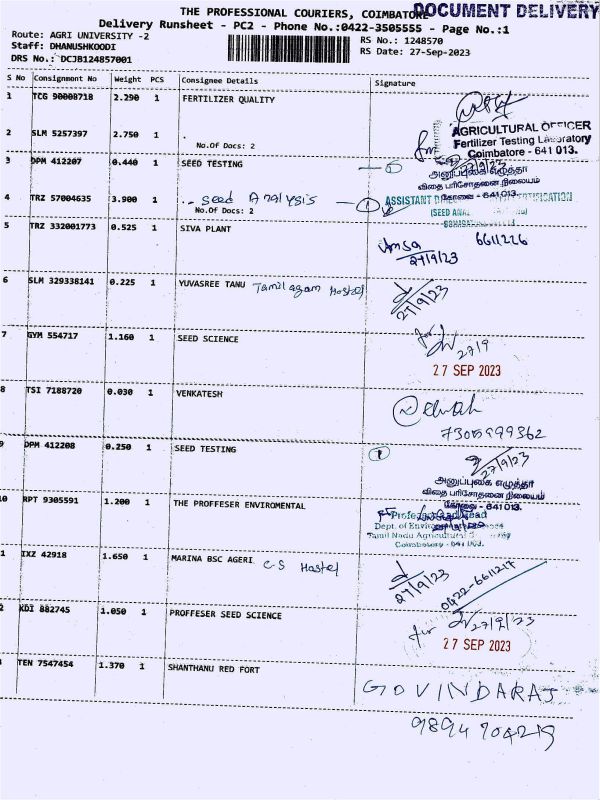 THE PROFESSIONAL COURIERS, COIMBATORE
DOCUMENT DELIVERY
Delivery Runsheet - PC2 - Phone No.:0422-3505555 - Page No.:1
Route: AGRI UNIVERSITY -2
RS No.: 1248570
Staff: DHANUSHKOODI
RS Date: 27-Sep-2023
DRS No.: DCJB124857001
S No Consignment No Weight PCS Consignee Details Signature
1 TCG 90008718 2.290 1 FERTILIZER QUALITY
AGRICULTURAL OFFICER
Fertilizer Testing Laboratory
Coimbatore - 641 013.
2 SLM 5257397 2.750 1 .
No.Of Docs: 2
3 DPM 412207 0.440 1 SEED TESTING
27/9/23
அனுப்புகை எழுத்தர்
விதை பரிசோதனை நிலையம்
கோவை - 641 013.
4 TRZ 57004635 3.900 1 . Seed Analysis
No.Of Docs: 2
1
ASSISTANT
5 TRZ 332001773 0.525 1 SIVA PLANT
6611226
27/9/23
6 SLM 329338141 0.225 1 YUVASREE TANU Tamilagam Hostel
27/9/23
7 GYM 554717 1.160 1 SEED SCIENCE
for
27/9
27 SEP 2023
8 TSI 7188720 0.030 1 VENKATESH
7305999362
9 DPM 412208 0.250 1 SEED TESTING
1
27/9/23
அனுப்புகை எழுத்தர்
விதை பரிசோதனை நிலையம்
கோவை - 641 013.
10 RPT 9305591 1.200 1 THE PROFFESER ENVIROMENTAL
Professor and Head
Tamil Nadu Agricultural University
Coimbatore - 641 003.
1 IXZ 42918 1.650 1 MARINA BSC AGERI C-S Hostel
27/9/23
0422-6611217
2 KDI 882745 1.050 1 PROFFESER SEED SCIENCE
for
27/9/23
27 SEP 2023
TEN 7547454 1.370 1 SHANTHANU RED FORT
GOVINDARAJ
9894704219